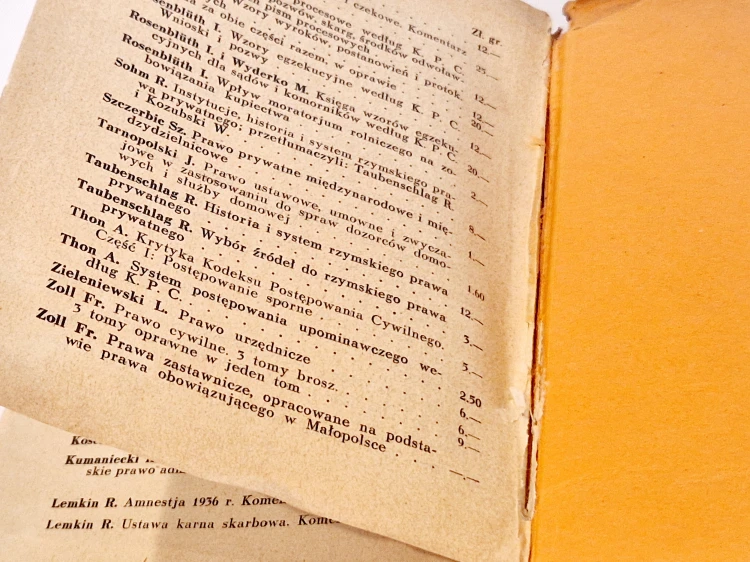 i czekowe. Komentarz
Zł. gr.
procesowe według K. P. C.
12.—
pozwów, skarg, środków odwoław.
pism procesowych
25.—
Wzory wyroków, postanowień i protok.
za obie części razem, w oprawie
Rosenblüth I. Wzory egzekucyjne według K. P. C.
12.—
Wnioski i pozwy
12.—
Rosenblüth I. i Wyderko M. Księga wzorów egzeku-
20.—
cyjnych dla sądów i komorników według K. P. C.
12.—
Rosenblüth I. Wpływ moratorjum rolniczego na zo-
bowiązania kupiectwa
20.—
Sohm R. Instytucje, historia i system rzymskiego pra-
wa prywatnego; przetłumaczyli: Taubenschlag R.
i Kozubski W.
2.—
Szczerbic Sz. Prawo prywatne międzynarodowe i mię-
dzydzielnicowe
8.—
Tarnopolski J. Prawo ustawowe, umowne i zwycza-
jowe w zastosowaniu do spraw dozorców domo-
wych i służby domowej
1.—
Taubenschlag R. Historia i system rzymskiego prawa
prywatnego
1.60
Taubenschlag R. Wybór źródeł do rzymskiego prawa
prywatnego
12.—
Thon A. Krytyka Kodeksu Postępowania Cywilnego.
Część I: Postępowanie sporne
3.—
Thon A. System postępowania upominawczego we-
dług K. P. C.
3.—
Zieleniewski L. Prawo urzędnicze
2.50
Zoll Fr. Prawo cywilne. 3 tomy brosz.
6.—
3 tomy oprawne w jeden tom
6.—
9.—
Zoll Fr. Prawa zastawnicze, opracowane na podsta-
wie prawa obowiązującego w Małopolsce
—.—
Kumaniecki
skie prawo adm
Lemkin R. Amnestja 1936 r. Komen
Lemkin R. Ustawa karna skarbowa. Kome